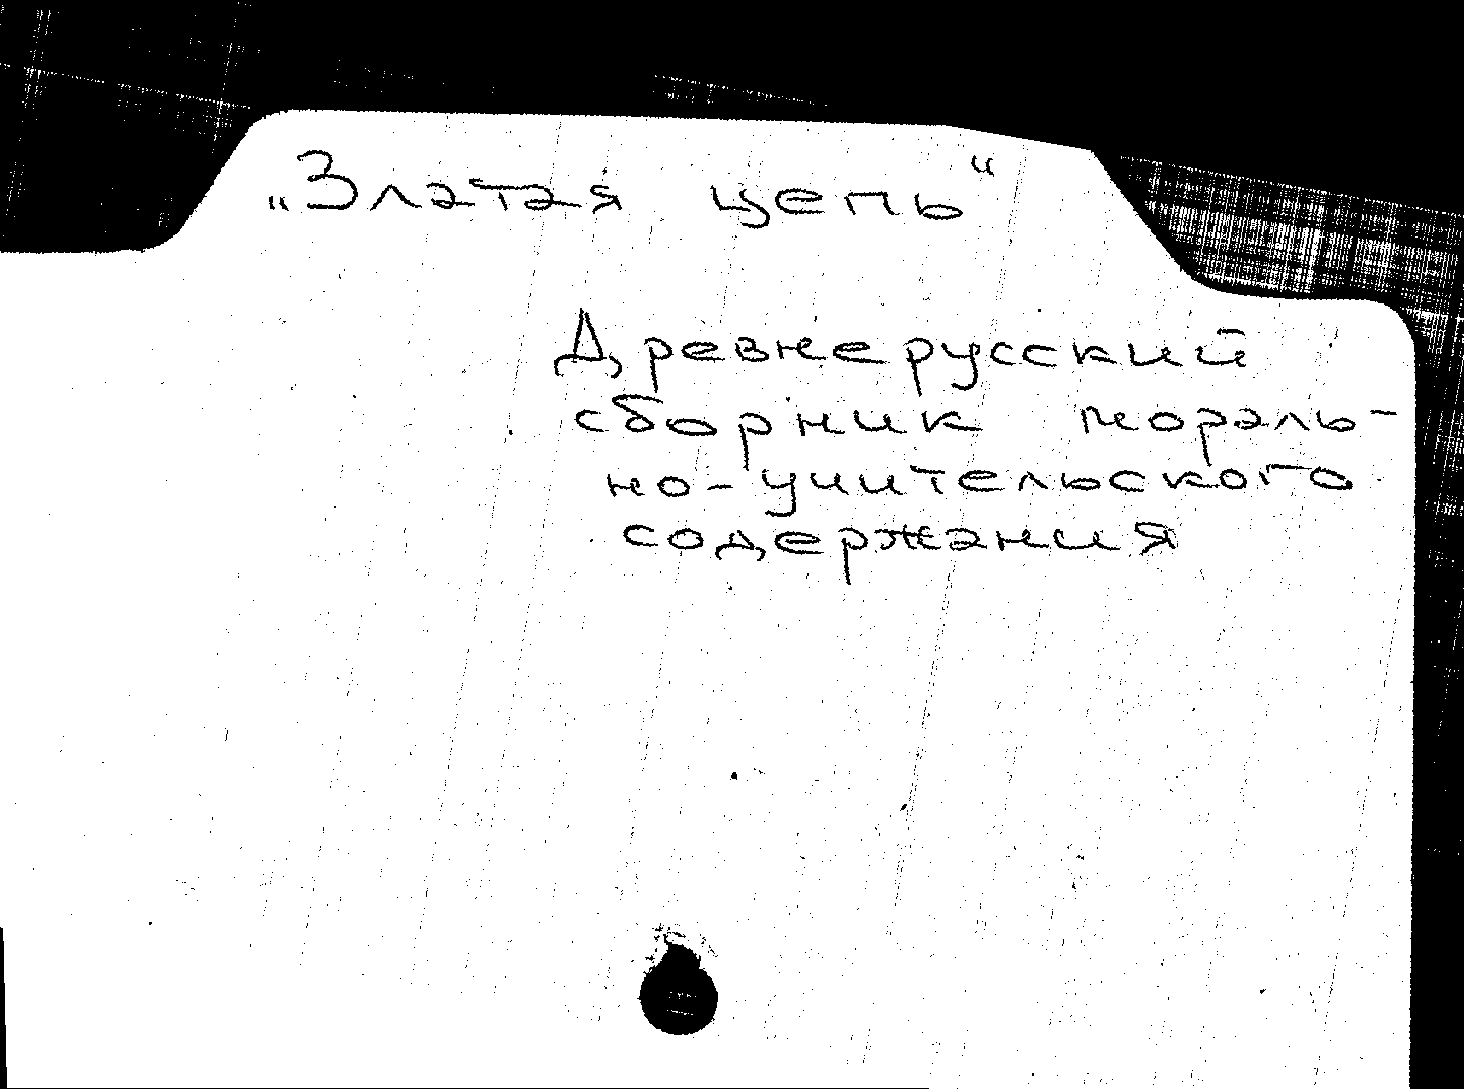 „Златая цепь“
Древнерусский
сборник мораль-
но-учительского
содержания